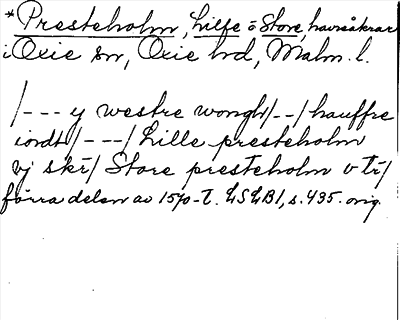 * Presteholm, Lille o Store, havreåkrar
i Oxie sn, Oxie hd, Malm. l.
/--- y westre wongh/--/hauffre
iordt/---/Lille presteholm
vj skr/ Store presteholm v tr/
förra delen av 1570-t. LSLB1, s. 435. orig.